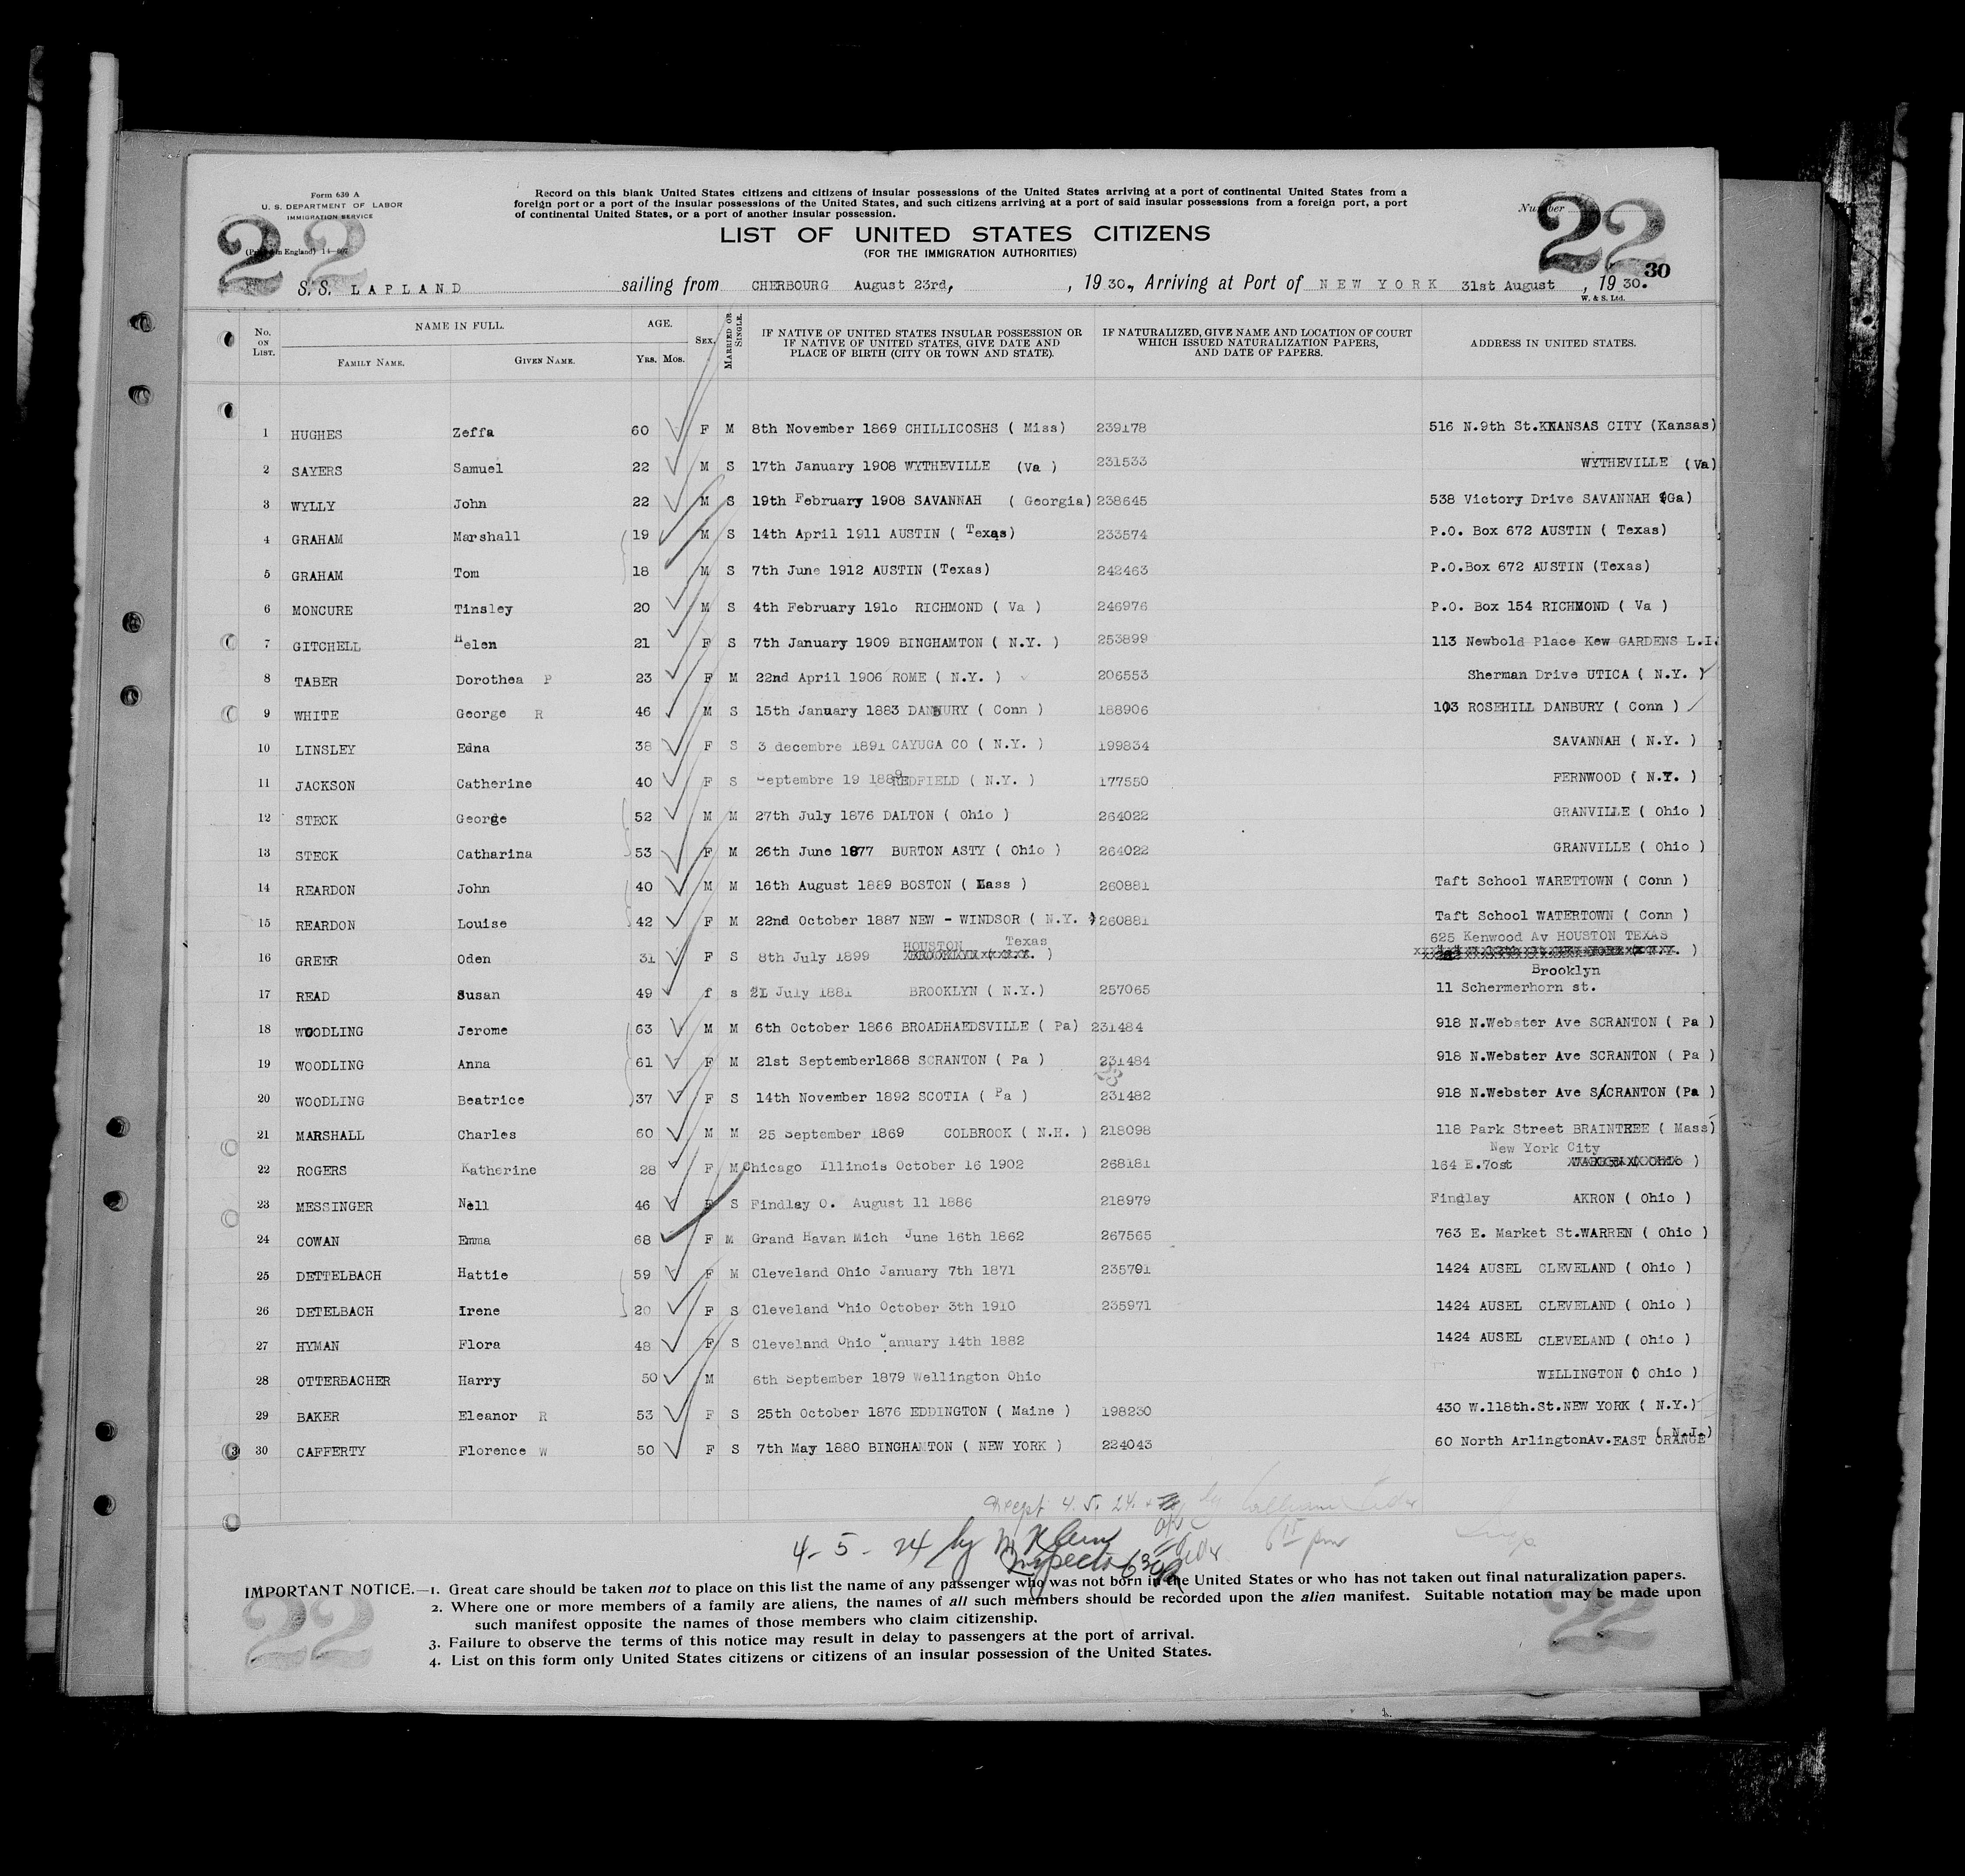 Form 630 A
U. S. DEPARTMENT OF LABOR
IMMIGRATION SERVICE
22
Record on this blank United States citizens and citizens of insular possessions of the United States arriving at a port of continental United States from a
foreign port or a port of the insular possessions of the United States, and such citizens arriving at a port of said insular possessions from a foreign port, a port
of continental United States, or a port of another insular possession.
Number 22
LIST OF UNITED STATES CITIZENS
(FOR THE IMMIGRATION AUTHORITIES)
30
S.S. LAPLAND sailing from CHERBOURG August 23rd, , 19 30., Arriving at Port of NEW YORK 31st August , 19 30.
W. & S. Ltd.
No. ON LIST. NAME IN FULL. FAMILY NAME. GIVEN NAME. AGE. YRS. MOS. SEX. MARRIED OR SINGLE. IF NATIVE OF UNITED STATES INSULAR POSSESSION OR IF NATIVE OF UNITED STATES, GIVE DATE AND PLACE OF BIRTH (CITY OR TOWN AND STATE). IF NATURALIZED, GIVE NAME AND LOCATION OF COURT WHICH ISSUED NATURALIZATION PAPERS, AND DATE OF PAPERS. ADDRESS IN UNITED STATES.
1 HUGHES Zeffa 60 F M 8th November 1869 CHILLICOSHS ( Miss) 239178 516 N.9th St.KKANSAS CITY (Kansas)
2 SAYERS Samuel 22 M S 17th January 1908 WYTHEVILLE (Va ) 231533 WYTHEVILLE (Va)
3 WYLLY John 22 M S 19th February 1908 SAVANNAH ( Georgia) 238645 538 Victory Drive SAVANNAH (Ga)
4 GRAHAM Marshall 19 M S 14th April 1911 AUSTIN ( Texas) 233574 P.O. Box 672 AUSTIN ( Texas)
5 GRAHAM Tom 18 M S 7th June 1912 AUSTIN (Texas) 242463 P.O.Box 672 AUSTIN (Texas)
6 MONCURE Tinsley 20 M S 4th February 191o RICHMOND ( Va ) 246976 P.O. Box 154 RICHMOND ( Va )
7 GITCHELL Helen 21 F S 7th January 1909 BINGHAMTON ( N.Y. ) 253899 113 Newbold Place Kew GARDENS L.I.
8 TABER Dorothea P 23 F M 22nd April 1906 ROME ( N.Y. ) 206553 Sherman Drive UTICA ( N.Y. )
9 WHITE George R 46 M S 15th January 1883 DANBURY ( Conn ) 188906 103 ROSEHILL DANBURY ( Conn )
10 LINSLEY Edna 38 F S 3 decembre 1891 CAYUGA CO ( N.Y. ) 199834 SAVANNAH ( N.Y. )
11 JACKSON Catherine 40 F S Septembre 19 1889 REDFIELD ( N.Y. ) 177550 FERNWOOD ( N.Y. )
12 STECK George 52 M M 27th July 1876 DALTON ( Ohio ) 264022 GRANVILLE ( Ohio )
13 STECK Catharina 53 F M 26th June 1877 BURTON ASTY ( Ohio ) 264022 GRANVILLE ( Ohio )
14 REARDON John 40 M M 16th August 1889 BOSTON ( Mass ) 260881 Taft School WARETTOWN ( Conn )
15 REARDON Louise 42 F M 22nd October 1887 NEW - WINDSOR ( N.Y. ) 260881 Taft School WATERTOWN ( Conn )
16 GREER Oden 31 F S 8th July 1899 HOUSTON Texas 625 Kenwood Av HOUSTON TEXAS
17 READ Susan 49 f s 21 July 1881 BROOKLYN ( N.Y.) 257065 11 Schermerhorn st. Brooklyn
18 WOODLING Jerome 63 M M 6th October 1866 BROADHAEDSVILLE ( Pa) 231484 918 N.Webster Ave SCRANTON ( Pa )
19 WOODLING Anna 61 F M 21st September1868 SCRANTON ( Pa ) 231484 918 N.Webster Ave SCRANTON ( Pa )
20 WOODLING Beatrice 37 F S 14th November 1892 SCOTIA ( Pa ) 231482 918 N.Webster Ave SACRANTON (Pa )
21 MARSHALL Charles 60 M M 25 September 1869 COLBROOK ( N.H. ) 218098 118 Park Street BRAINTREE ( Mass)
22 ROGERS Katherine 28 F M Chicago Illinois October 16 1902 268181 164 E.7ost New York City
23 MESSINGER Nell 46 F S Findlay O. August 11 1886 218979 Findlay AKRON ( Ohio )
24 COWAN Emma 68 F M Grand Havan Mich June 16th 1862 267565 763 E. Market St.WARREN ( Ohio )
25 DETTELBACH Hattie 59 F M Cleveland Ohio January 7th 1871 235791 1424 AUSEL CLEVELAND ( Ohio )
26 DETELBACH Irene 20 F S Cleveland Ohio October 3th 1910 235971 1424 AUSEL CLEVELAND ( Ohio )
27 HYMAN Flora 48 F S Cleveland Ohio January 14th 1882 1424 AUSEL CLEVELAND ( Ohio )
28 OTTERBACHER Harry 50 M 6th September 1879 Wellington Ohio WILLINGTON ( Ohio )
29 BAKER Eleanor R 53 F S 25th October 1876 EDDINGTON ( Maine ) 198230 430 W.118th.St.NEW YORK ( N.Y.)
30 CAFFERTY Florence W 50 F S 7th May 1880 BINGHAMTON ( NEW YORK ) 224043 60 North ArlingtonAv.EAST ORANGE ( N.J.)
4. 5. 24.
4- 5 - 24 by M Klein
Inspector 630
IMPORTANT NOTICE.—1. Great care should be taken not to place on this list the name of any passenger who was not born in the United States or who has not taken out final naturalization papers.
2. Where one or more members of a family are aliens, the names of all such members should be recorded upon the alien manifest. Suitable notation may be made upon
such manifest opposite the names of those members who claim citizenship.
3. Failure to observe the terms of this notice may result in delay to passengers at the port of arrival.
4. List on this form only United States citizens or citizens of an insular possession of the United States.
22
22